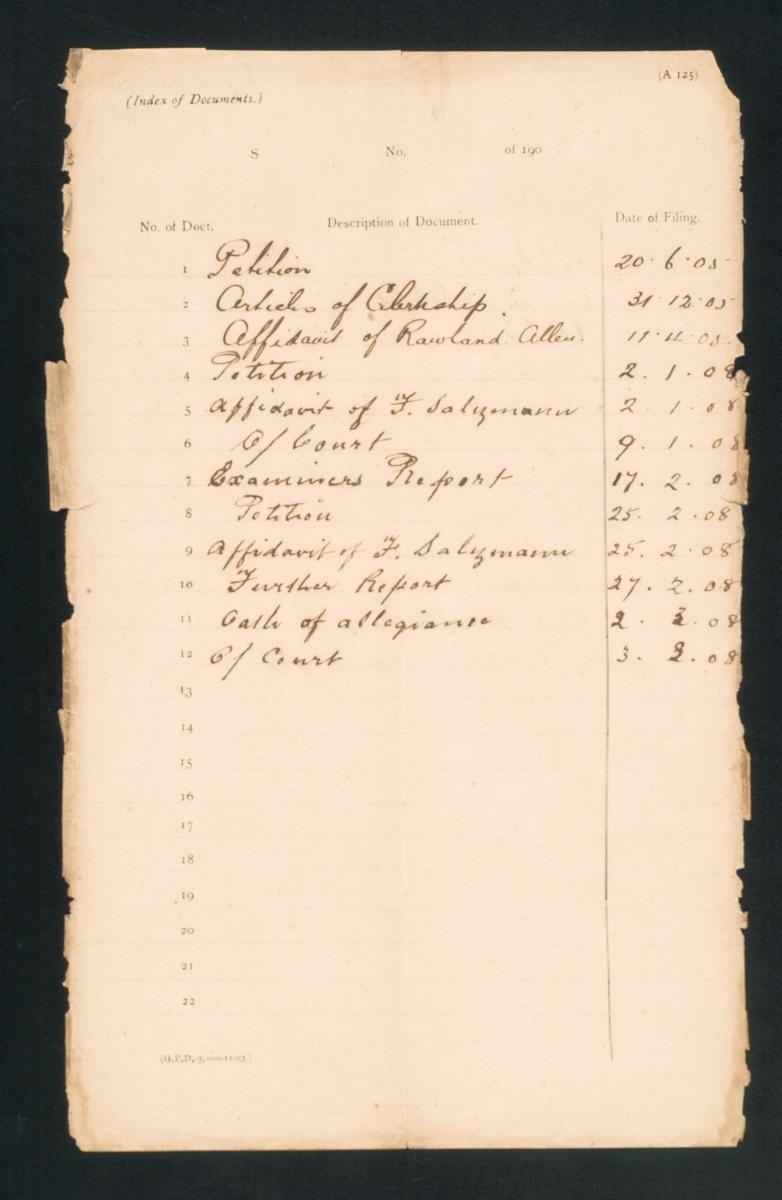 (A 125)
(Index of Documents.)
S No. of 190
No. of Doct. Description of Document. Date of Filing.
1 Petition 20.6.05
2 Articles of Clerkship. 31.12.05
3 Affidavit of Rawland Allen. 11.4.05.
4 Petition 2.1.08
5 Affidavit of F. Salzmann 2.1.08
6 O/ Court 9.1.08
7 Examiners Report 17.2.08
8 Petition 25.2.08
9 Affidavit of F. Salzmann 25.2.08
10 Further Report 27.2.08
11 Oath of allegiance 2. .08
12 O/ Court 3. .08
13
14
15
16
17
18
19
20
21
22
(G.P.D.-5,000-11-05.)